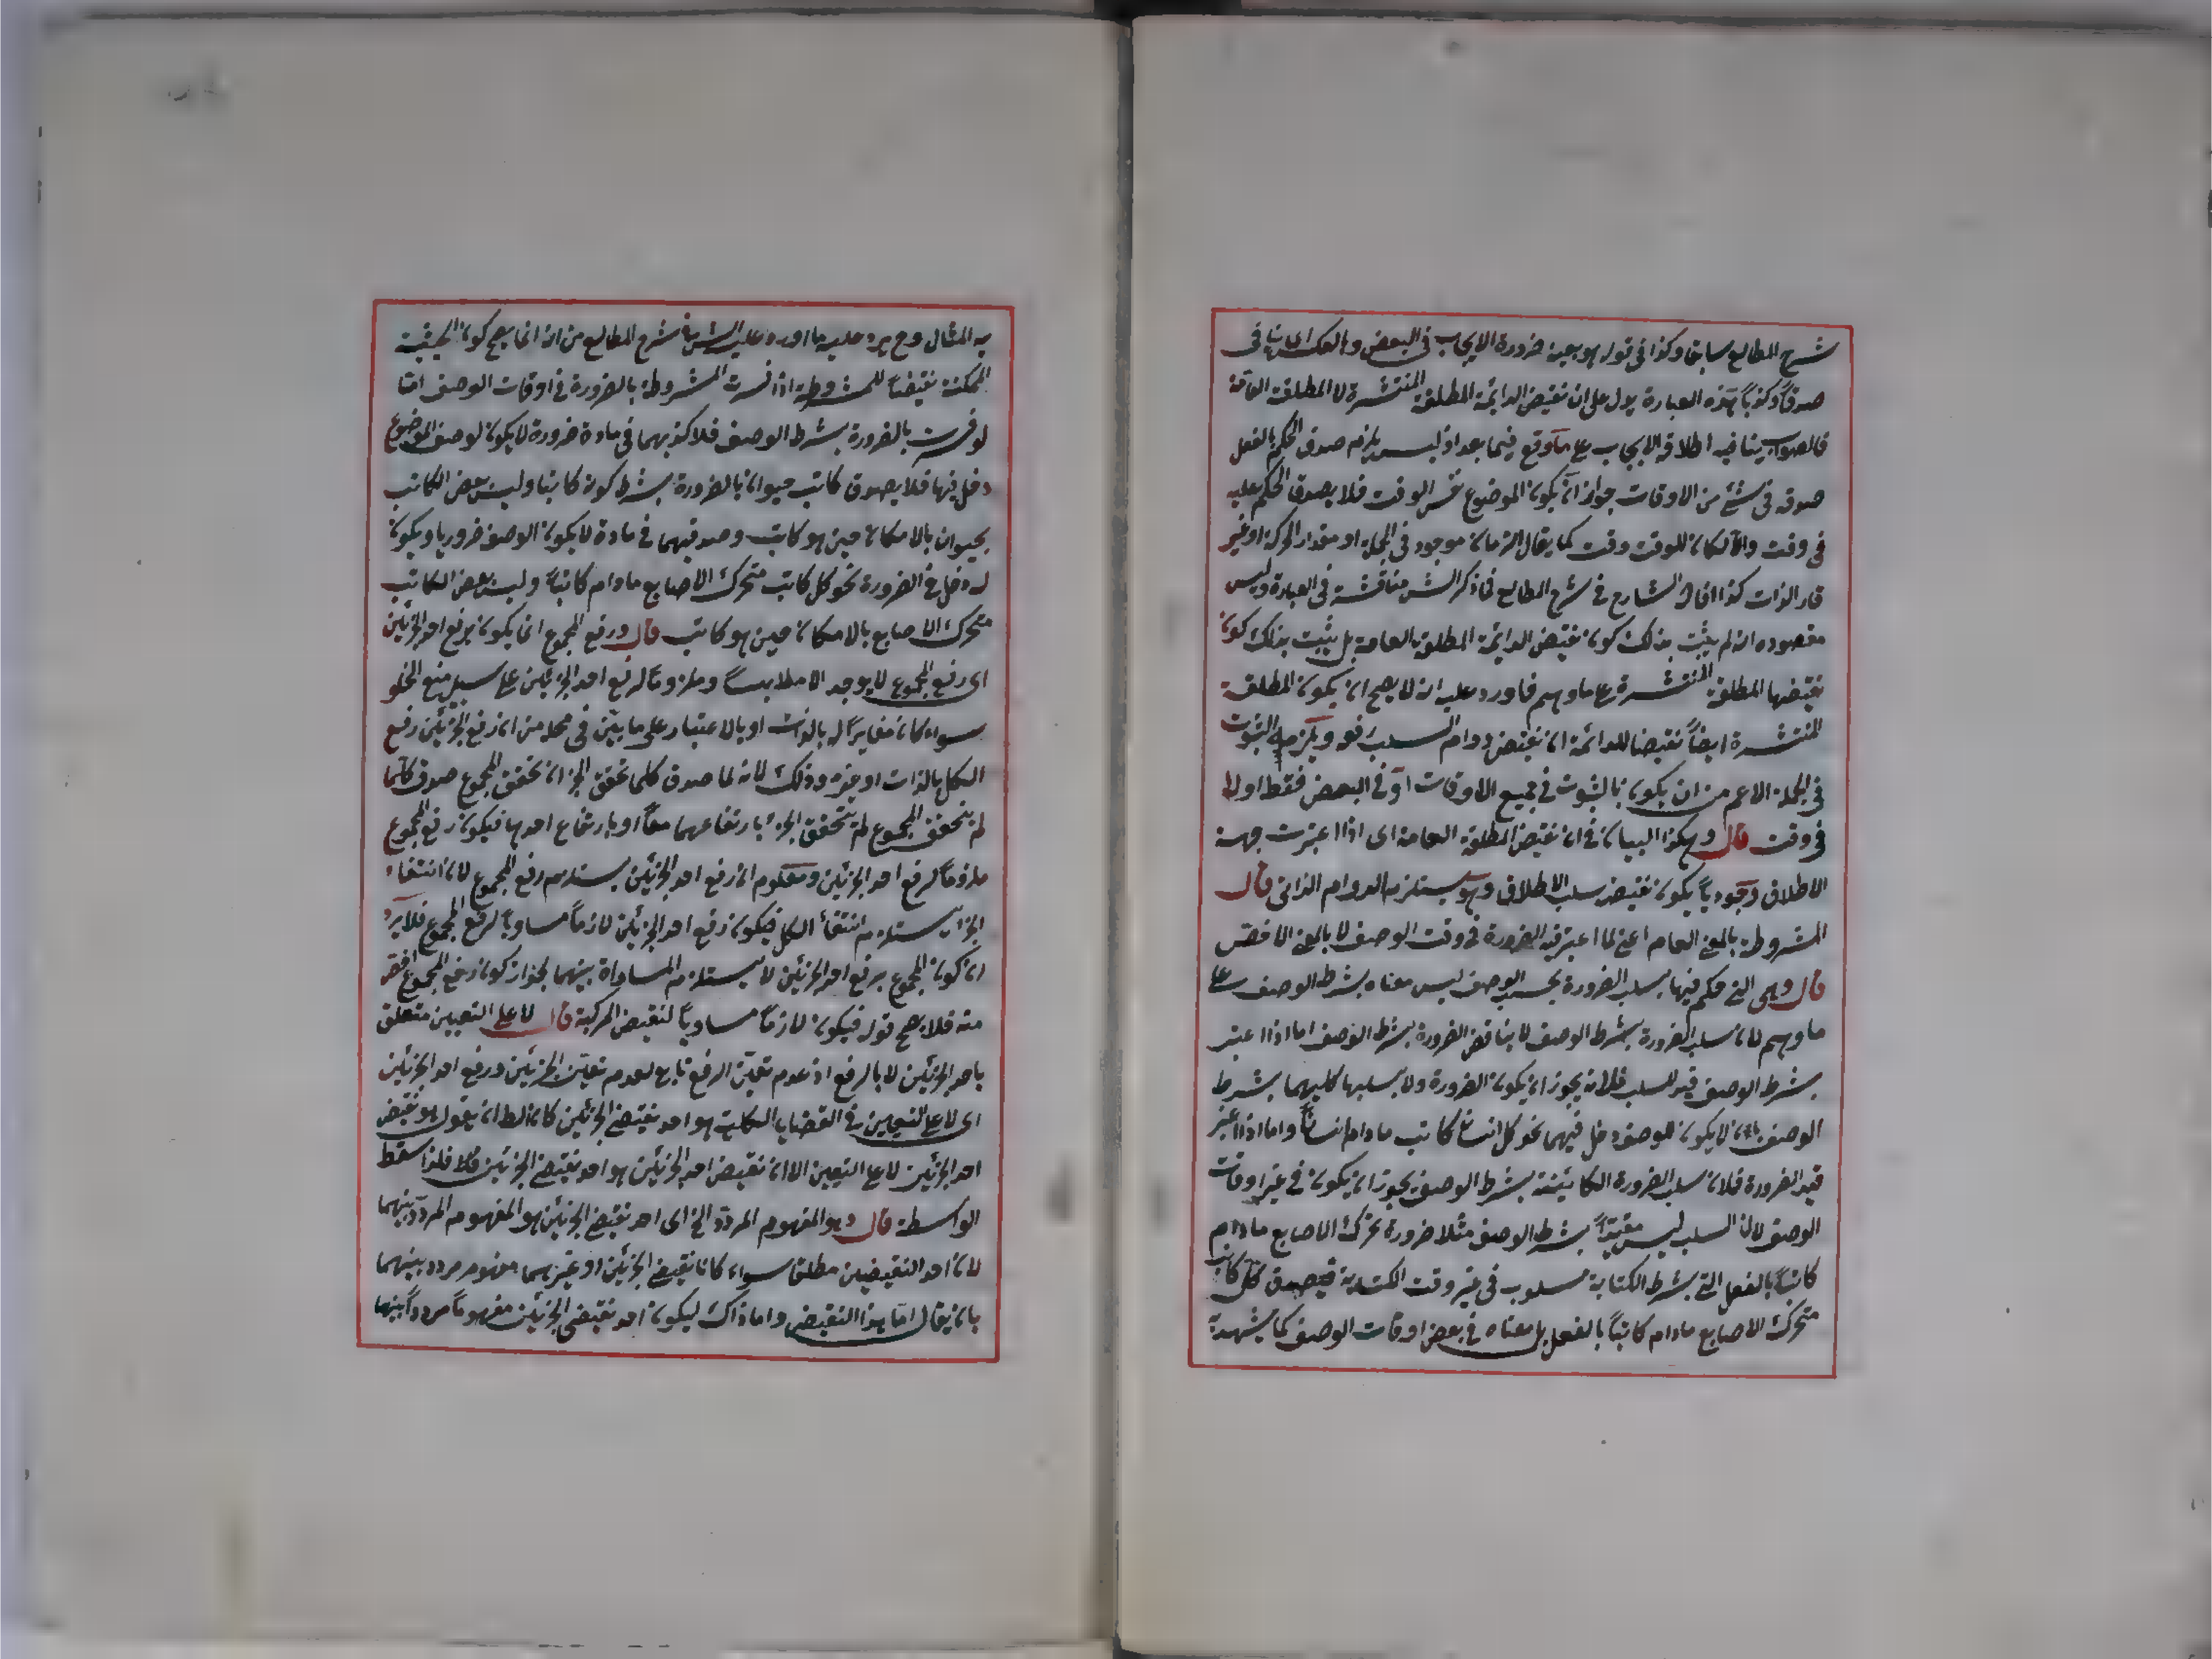 شرح المطالع سابقا وكذا في قوله هو بعينه ضرورة الايجاب في البعض وبالعكس اى تنافى
صدقاً وكذباً هذه العبارة يدل على ان نقيض الدائمة المطلقة المنتشرة لا المطلقة العامة
فالصواب ينافيه اطلاق الايجاب على ما وقع فيما بعد اذ ليس يلزم صدق الحكم بالفعل
صدقه في شئ من الاوقات جواز ان يكون الموضوع نفس الوقت فلا يصدق الحكم عليه
في وقت والا لكان للوقت وقت كما يقال الزمان موجود في الجملة او مقدار الحركة او غير
قار الذات كذا افاد الشارح في شرح المطالع فما ذكر الشر مناقشة في العبارة وليس
مقصوده انه لم يثبت بذلك كون نقيض الدائمة المطلقة العامة بل يثبت بذلك كون
نقيضها المطلقة المنتشرة على ما وهم فاورد عليه انه لا يصح ان يكون المطلقة
المنتشرة ايضاً نقيضا للدائمة ان نقيض دوام السلب رفعه ويلزمه الثبوت
في الجملة الاعم من ان يكون بالثبوت في جميع الاوقات او في البعض فقط او لا
في وقت قال وهكذا البيان في ان نقيض المطلقة العامة اى اذا اعتبرت جهة
الاطلاق وجودياً يكون نقيضه سلب الاطلاق وهو يستلزم الدوام الذاتى قال
المشروطة بالمعنى العام اعنى لما اعتبر فيه الضرورة في وقت الوصف لا بالمعنى الاخص
قال وهى التى حكم فيها بسلب الضرورة بحسب الوصف ليس معناه بشرط الوصف على
ما وهم لان سلب الضرورة بشرط الوصف لا يناقض الضرورة بشرط الوصف اما اذا اعتبر
بشرط الوصف قيد للسلب فلانه يجوز ان يكون الضرورة ولا بسلبها كليهما بشرط
الوصف بان لا يكون للوصف دخل فيهما نحو كل انسان كاتب ما دام انساناً واما اذا اعتبر
قيد الضرورة فلان سلب الضرورة الكائنة بشرط الوصف يجوز ان يكون في غير اوقات
الوصف لان السلب ليس مقيداً بشرط الوصف مثلا ضرورة تحرك الاصابع مادام
كاتباً بالفعل التى بشرط الكتابة مسلوب في غير وقت الكتابة فيصدق كل كاتب
متحرك الاصابع مادام كاتباً بالفعل بل معناه في بعض اوقات الوصف كما يشهد
به المثال وح يرد عليه ما اورد عليه الشر في شرح المطالع من انه انما يصح كون الحينية
الممكنة نقيضاً للمشروطة اذا فسرت المشروطة بالضرورة في اوقات الوصف اما
لو فسرت بالضرورة بشرط الوصف فلا كذبهما في مادة ضرورة لا يكون لوصف الموضوع
دخل فيها فلا يصدق كاتب حيوان بالضرورة بشرط كونه كاتبا وليس بعض الكاتب
بحيوان بالامكان حين هو كاتب وصدقهما في مادة لا يكون الوصف ضروريا ويكون
له دخل في الضرورة نحو كل كاتب متحرك الاصابع مادام كاتباً وليس بعض الكاتب
متحرك الاصابع بالامكان حين هو كاتب قال ورفع المجموع انما يكون برفع احد الجزئين
اى رفع المجموع لا يوجد الا ملابساً وملزوماً لرفع احد الجزئين على سبيل منع الخلو
سواء كان مغايراً له بالذات او بالاعتبار على ما بيّن في محله من ان رفع الجزئين رفع
الكل بالذات او غيره وذلك لانه لما صدق كلما تحقق الجزآن تحقق المجموع صدق كلما
لم يتحقق المجموع لم يتحقق الجزء بارتفاعهما معاً او بارتفاع احدهما فيكون رفع المجموع
ملزوماً لرفع احد الجزئين ومعلوم ان رفع احد الجزئين يستلزم رفع المجموع لان انتفاء
الجزء يستلزم انتفاء الكل فيكون رفع احد الجزئين لازماً مساوياً لرفع المجموع فلا يرد
ان كون المجموع برفع احد الجزئين لا يستلزم المساواة بينهما لجواز كون رفع المجموع اخص
منه فلا يصح قوله فيكون لازماً مساوياً لنقيض المركبة قال لا على التعيين متعلق
باحد الجزئين لا بالرفع اذ عدم تعين الرفع تابع لعدم تعين الجزئين ورفع احد الجزئين
اى لا على التعيين في القضايا الكلية هو احد نقيضى الجزئين كان الط ان يقول هو نقيض
احد الجزئين لا على التعيين الا ان نقيض احد الجزئين هو احد نقيضى الجزئين فلذا سقط
الواسطة قال وهو المفهوم المردد الخ اى احد نقيضى الجزئين هو المفهوم المردد بينهما
لان احد النقيضين مطلقا سواء كانا نقيضى الجزئين او غيرهما مفهوم مردد بينهما
بان يقال اما هذا النقيض واما ذاك ليكون احد نقيضى الجزئين مفهوماً مردداً بينها